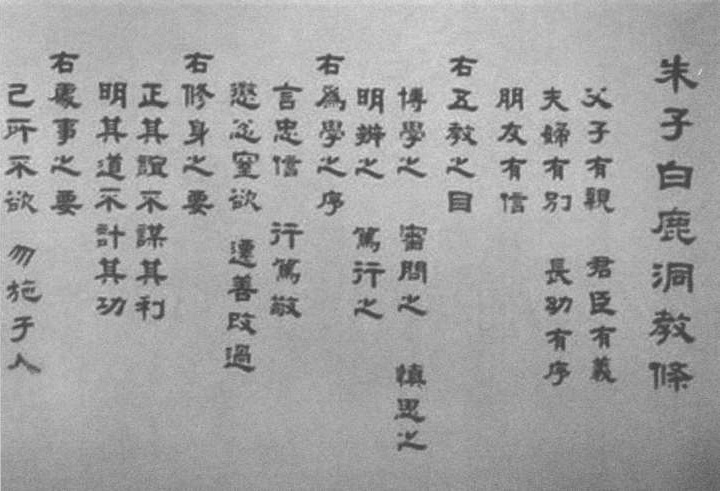 朱子白鹿洞教條
父子有親 君臣有義
夫婦有別 長幼有序
朋友有信
右五教之目
博學之 審問之 慎思之
明辨之 篤行之
右爲學之序
言忠信 行篤敬
懲忿窒欲 遷善改過
右修身之要
正其誼不謀其利
明其道不計其功
右處事之要
己所不欲 勿施于人